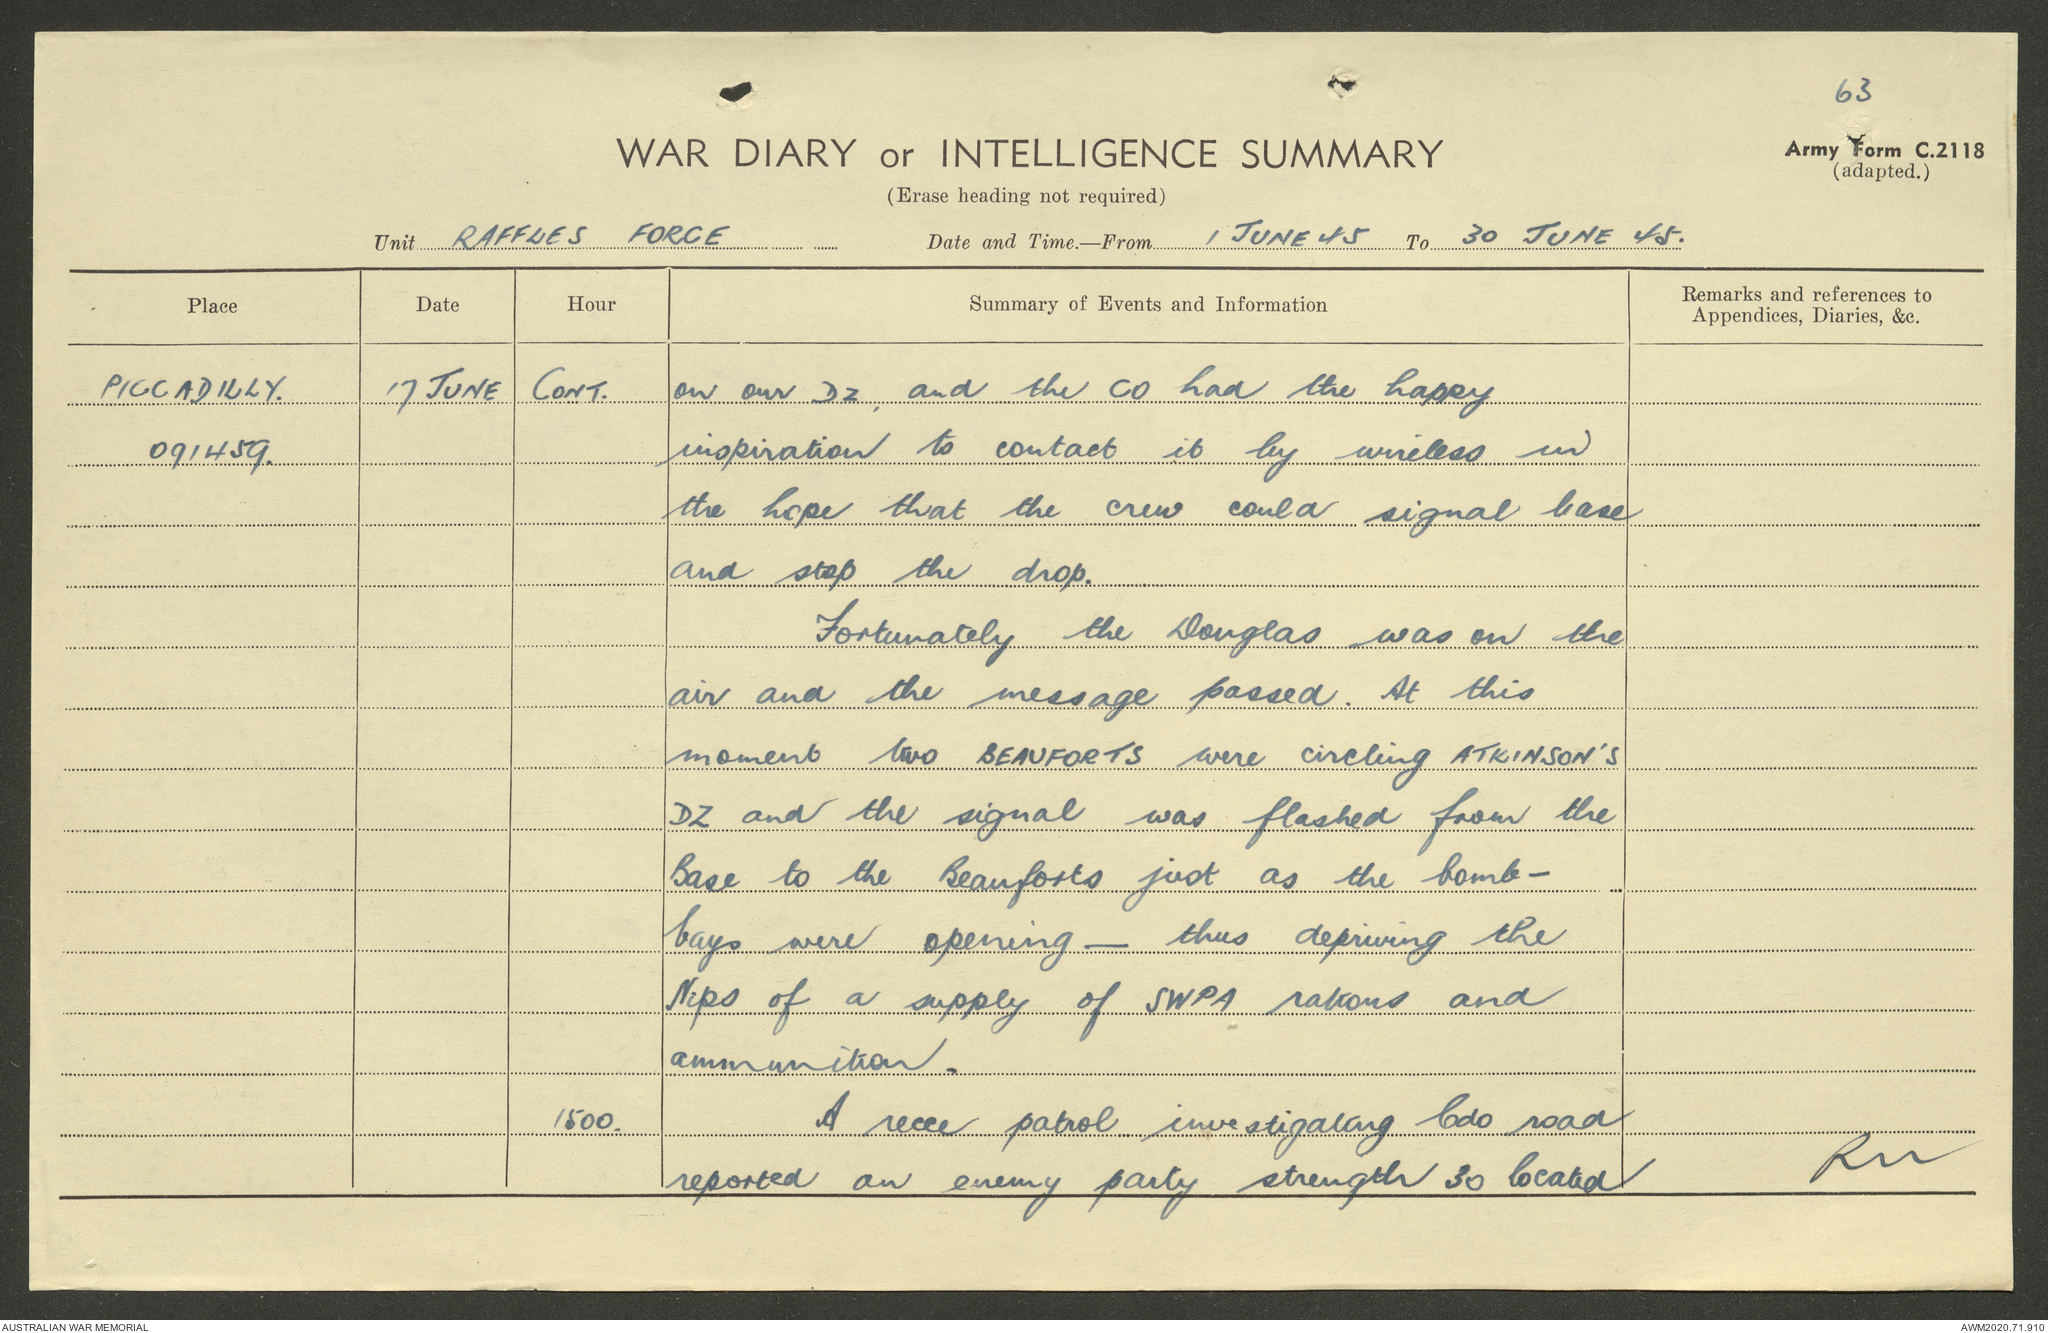 63
WAR DIARY or INTELLIGENCE SUMMARY
Army Form C.2118
(adapted.)
(Erase heading not required)
Unit RAFFLES FORCE Date and Time.—From 1 JUNE 45 To 30 JUNE 45.
Place Date Hour Summary of Events and Information Remarks and references to
Appendices, Diaries, &c.
PICCADILLY. 17 JUNE CONT. on our DZ, and the CO had the happy
091459. inspiration to contact it by wireless in
the hope that the crew could signal base
and stop the drop.
Fortunately the Douglas was on the
air and the message passed. At this
moment two BEAUFORTS were circling ATKINSON'S
DZ and the signal was flashed from the
Base to the Beauforts just as the bomb-
bays were opening — thus depriving the
Nips of a supply of SWPA rations and
ammunition.
1500. A recce patrol investigating Cdo road
reported an enemy party strength 30 located
AUSTRALIAN WAR MEMORIAL
AWM2020.71.910